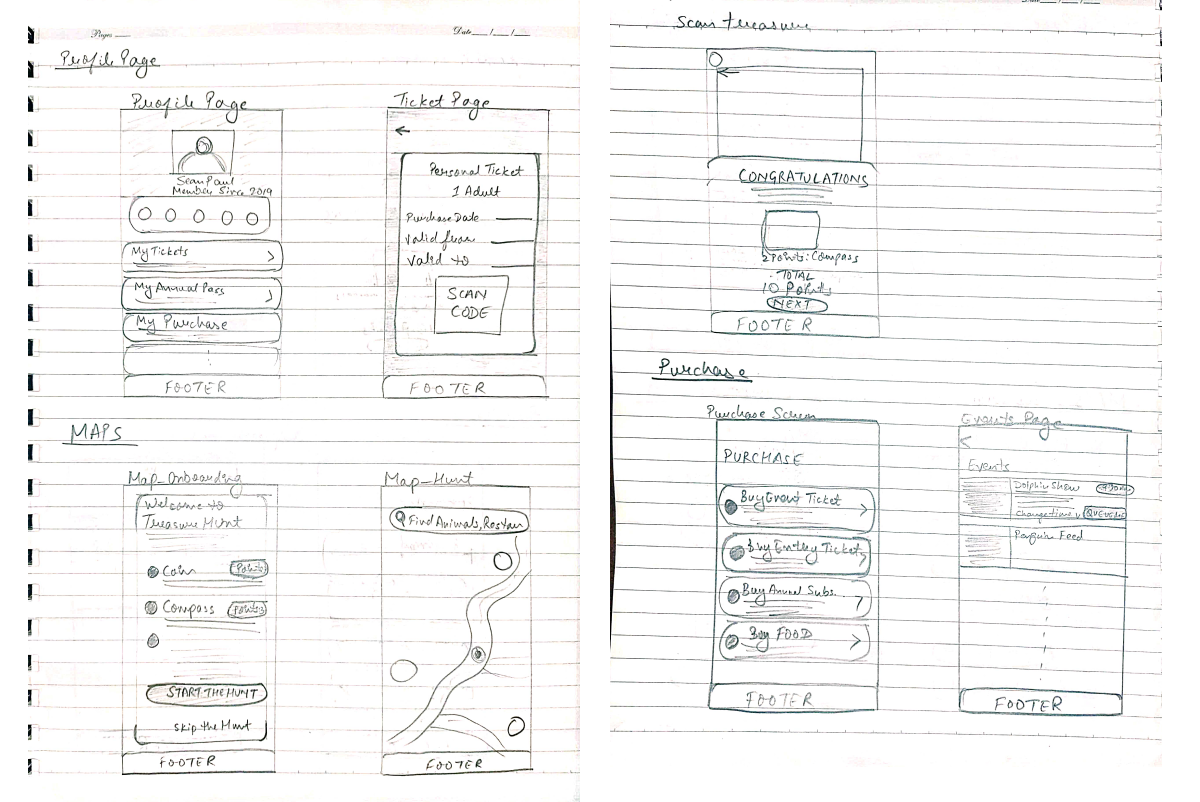 Pages
Date / /
Profile Page
Profile Page
Sean Paul
Member Since 2019
My Tickets
My Annual Pass
My Purchase
FOOTER
Ticket Page
Personal Ticket
1 Adult
Purchase Date
Valid from
Valid to
SCAN
CODE
FOOTER
MAPS
Map_Onboarding
Welcome to
Treasure Hunt
Coin
Points
Compass
Points
START THE HUNT
Skip the Hunt
FOOTER
Map_Hunt
Find Animals, Restau
FOOTER
Scan treasure
CONGRATULATIONS
2 Points: Compass
TOTAL
10 Points
NEXT
FOOTER
Purchase
Purchase Screen
PURCHASE
Buy Event Ticket
Buy Entry Ticket
Buy Annual Subs..
Buy FOOD
FOOTER
Events Page
Events
Dolphin Show
Change time
Penguin Feed
FOOTER